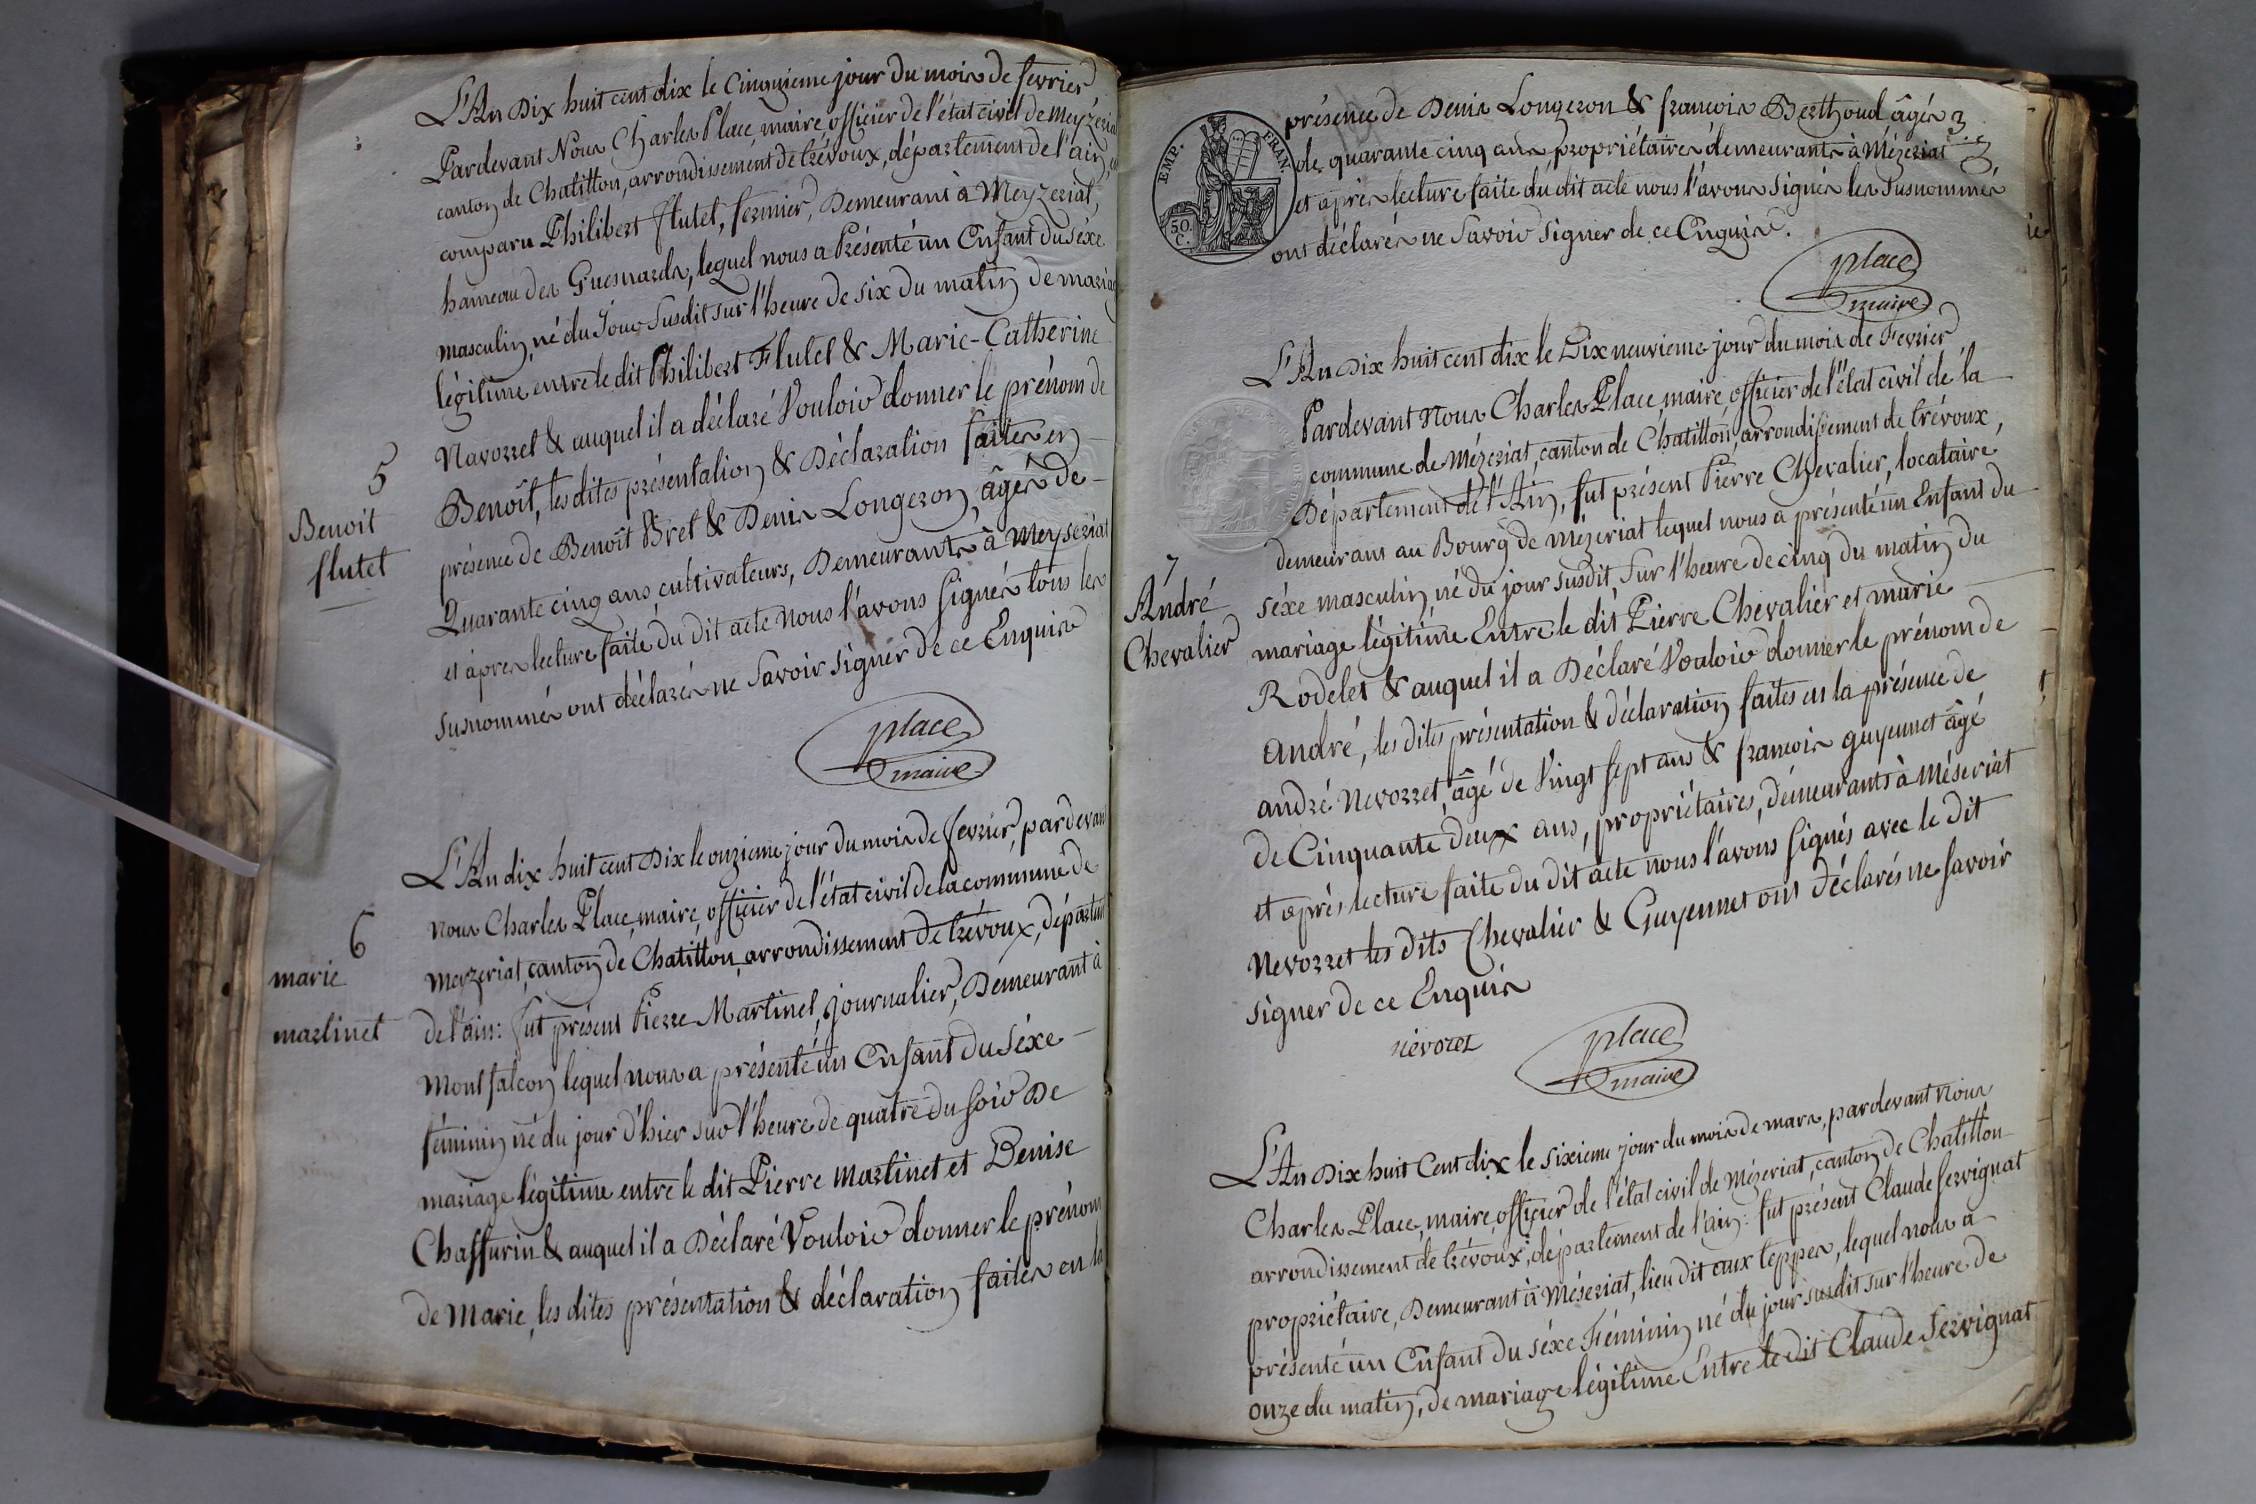 L'An Dix huit cent dix le Cinquieme jour du mois de fevrier
Pardevant Nous Charles Place, maire, officier de l'état civil de Meyzeriat
canton de Chatillon, arrondissement de trévoux, département de l'ain,
comparu Philibert flutet, fermier, Demeurant à Meyzeriat,
hameau des Guesnards, lequel nous a Présenté un Enfant du séxe
masculin, né du Jour Susdit sur l'heure de six du matin de mariage
légitime entre le dit Philibert Flutet & Marie-Catherine
Navorret & auquel il a déclaré Vouloir donner le prénom de
Benoît, les dites présentation & Déclaration faites en
présence de Benoît Bret & Denis Longeron, âgés de
Quarante cinq ans, cultivateurs, Demeurants à Meyseriat
et àpres lecture faite du dit acte nous l'avons signés tous les
susnommés ont déclarés ne Savoir signer de ce Enquis
place
maire
5
Benoit
flutet
L'An dix huit cent Dix le onzieme jour du mois de fevrier, pardevant
nous Charles Place, maire, officier de l'état civil de la commune de
Mezeriat, canton de Chatillon, arrondissement de trévoux, départemt
de l'ain: fut présent Pierre Martinet, journalier, Demeurant à
Montfalcon lequel nous a présenté un Enfant du séxe
féminin né du jour d'hier sur l'heure de quatre du soir De
mariage légitime entre le dit Pierre Martinet et Denise
Chaffurin & auquel il a Déclaré Vouloir donner le prénom
de Marie, les dites présentation & déclaration faites en la
6
marie
martinet
EMP. FRAN.
50 C.
présence de Denis Longeron & francois Berthoud âgés
de quarante cinq ans, propriétaires demeurants à Mézeriat
et après lecture faite du dit acte nous l'avons signés les susnommés
ont déclarés ne Savoir signer de ce Enquis.
place
maire
L'An Dix huit cent dix le Dix neuvieme jour du mois de Fevrier
Pardevant Nous Charles Place, maire, officier de l'état civil de la
commune de Mézeriat, canton de Chatillon, arrondissement de trévoux,
Département de l'Ain, fut présent Pierre Chevalier, locataire,
demeurans au Bourg de Mézeriat lequel nous a présenté un Enfant du
séxe masculin né du jour susdit, sur l'heure de cinq du matin du
mariage légitime Entre le dit Pierre Chevalier et marie
Rodelet & auquel il a Déclaré Vouloir donner le prénom de
andré, les dites présentation & déclaration faites en la présence de
andré Nevorret, âgé de Vingt sept ans & francois guyennet âgé
de Cinquante deux ans, propriétaires, demeurants à Méseriat
et après lecture faite du dit acte nous l'avons signés avec le dit
Nevorret les dits Chevalier & Guyennet ont déclarés ne savoir
signer de ce Enquis
névoret
place
maire
7
André
Chevalier
L'An Dix huit Cent dix le sixieme jour du mois de mars, pardevant Nous
Charles Place, maire, officier de l'état civil de Mézeriat, canton de Chatillon
arrondissement de trévoux, département de l'ain: fut présent Claude Servignat
propriétaire, Demeurant à Méseriat, lieu dit aux teppes, lequel nous a
présenté un Enfant du séxe Féminin né du jour susdit sur l'heure de
onze du matin, de mariage légitime Entre le dit Claude Servignat